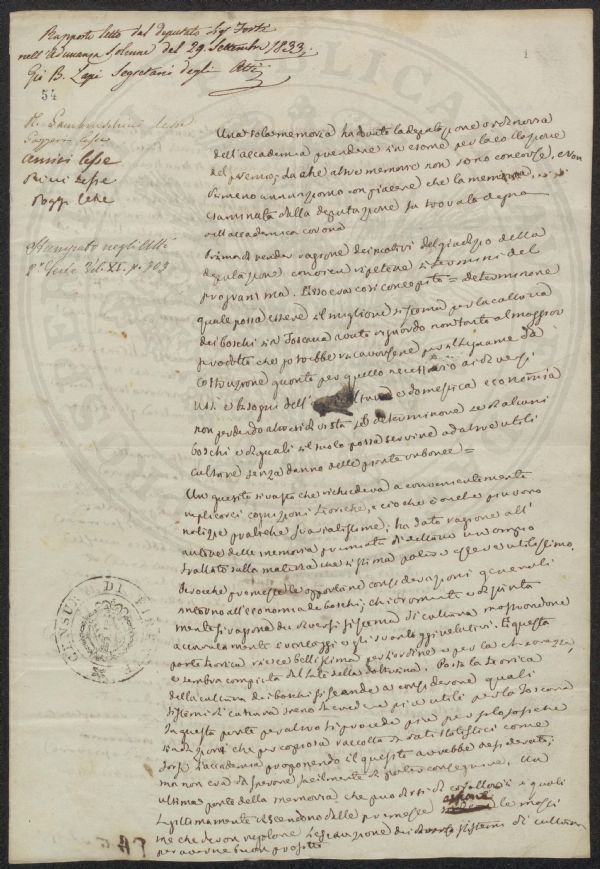 Rapporto letto dal deputato Sig. Forti
nell'Adunanza Solenne del 29. Settembre 1833.
Gio B. Zapi Segretario degli Atti
54
R. Lambruschini lesse
Gazzeri lesse
Amici lesse
Rini lesse
Poggi lesse
Stampato negli Atti
Vol. XI. p. 303
Una sola memoria ha dovuto la deputazione ordinaria
dell'accademia prendere in esame per la collazione
del premio; da che altre memorie non sono concorse, e non
di meno annunziamo con piacere che la memoria
esaminata dalla deputazione fu trovata degna
dell'accademica corona
Prima di render ragione dei motivi del giudizio della
deputazione converrà ripetere i termini del
programma. Esso era così concepito = determinare
quale possa essere il migliore sistema per la cultura
dei boschi in Toscana avuto riguardo non tanto al maggior
prodotto che potrebbe ricavarsene per legname da
costruzione quanto per quello necessario ai diversi
usi e bisogni dell' e domestica economia
non perdendo altresì di vista di determinare se alcuni
boschi e di quali il suolo possa servire ad altre utili
culture senza danno delle piante arboree =
Un quesito sì vasto che richiedeva a convenientemente
replicarci cognizioni teoriche, e ciò che è anche più raro
notizie pratiche svariatissime; ha dato ragione all'
autore della memoria premiata di dettare un ampio
trattato sulla materia che si stima potere essere utilissimo.
Perocchè premesse le opportune considerazioni generali
intorno all'economia dei boschi, chiaramente e distinta
mente si ragiona dei diversi sistemi di cultura mostrandone
accuratamente i vantaggi e gli svantaggi relativi. E questa
parte teorica riesce bellissima per l'ordine e per la chiarezza,
e sembra compiuta dal lato della dottrina. Posta la teorica
della cultura dei boschi si scende a considerare quali
sistemi di cultura sieno da credersi più utili per la Toscana
In questa parte peraltro si procede più per filosofiche
induzioni che per copiosa raccolta di dati statistici come
forse l'accademia proponendo il quesito avrebbe desiderato;
ma non era da sperare facilmente di poter conseguire. Un
ultima parte della memoria che può dirsi di corollarii i quali
legittimamente discendono dalle premesse le massi
me che devon regolare l'educazione dei diversi sistemi di cultura
per averne buon profitto
CENSURA DI FIRENZE